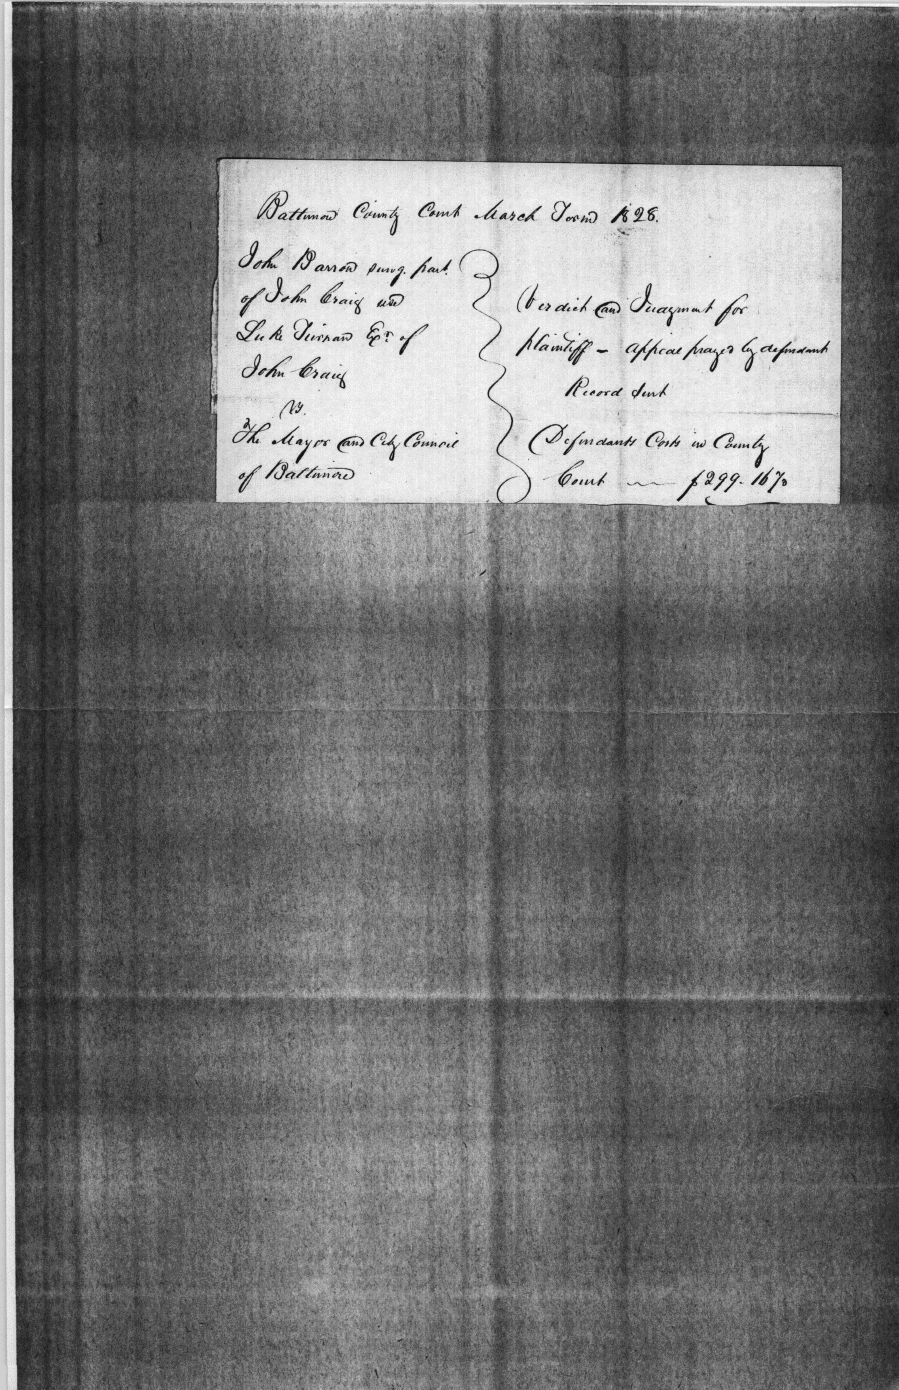 Baltimore County Court March Term 1828.
John Barron surv.g. part.
of John Craig use
Luke Tiernan Exr. of
John Craig
vs.
The Mayor and City Council
of Baltimore
Verdict and Judgment for
plaintiff - appeal prayed by defendant
Record Sent
Defendants Costs in County
Court — $299.16⅔